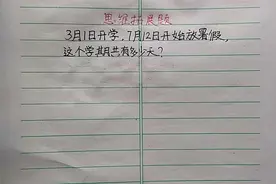 思维拓展题
3月1日开学，7月12日开始放暑假，
这个学期共有多少天？